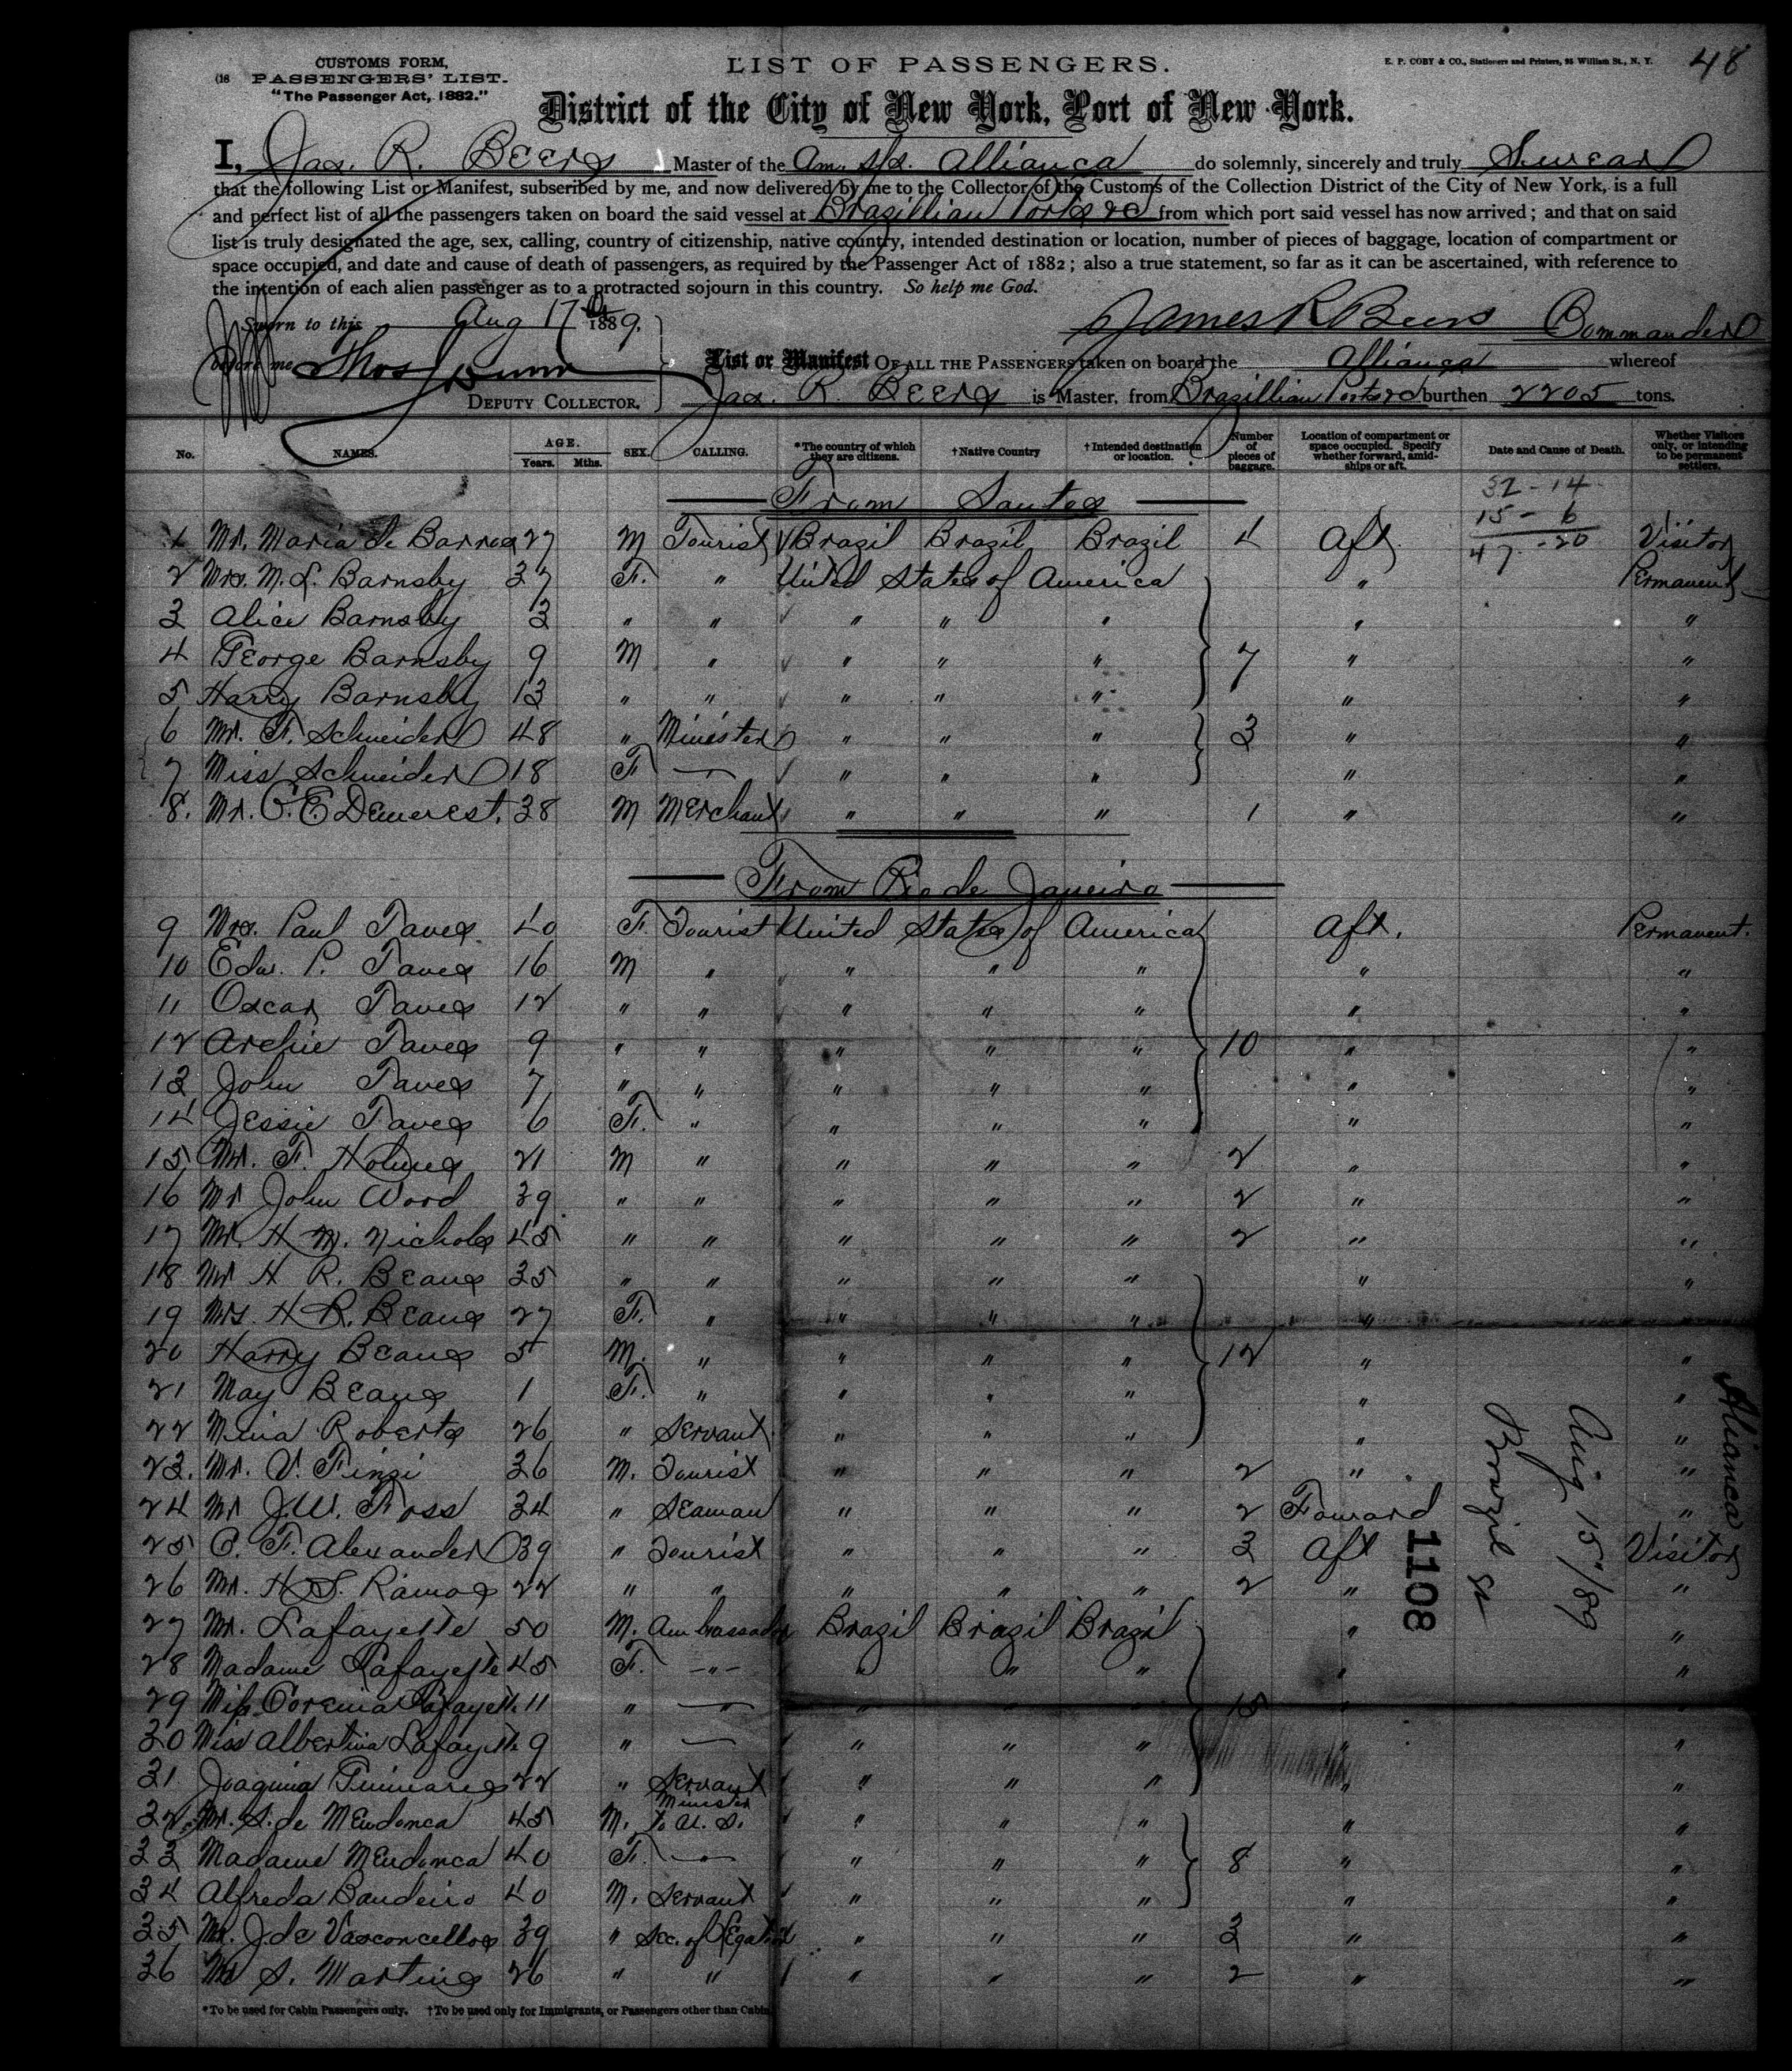 CUSTOMS FORM,
PASSENGERS' LIST.
"The Passenger Act, 1882."
LIST OF PASSENGERS.
E. P. COBY & CO., Stationers and Printers, 95 William St., N. Y.
48
District of the City of New York, Port of New York.
I, Jas. R. Beers Master of the Am. s/s. Allianca do solemnly, sincerely and truly Swear
that the following List or Manifest, subscribed by me, and now delivered by me to the Collector of the Customs of the Collection District of the City of New York, is a full
and perfect list of all the passengers taken on board the said vessel at Brazillian Ports &c from which port said vessel has now arrived; and that on said
list is truly designated the age, sex, calling, country of citizenship, native country, intended destination or location, number of pieces of baggage, location of compartment or
space occupied, and date and cause of death of passengers, as required by the Passenger Act of 1882; also a true statement, so far as it can be ascertained, with reference to
the intention of each alien passenger as to a protracted sojourn in this country. So help me God.
Sworn to this Aug 17 1889,
James R Beers Commander
before me Thos Dunn
List or Manifest OF ALL THE PASSENGERS taken on board the Allianca whereof
DEPUTY COLLECTOR.
Jas. R. Beers is Master, from Brazillian Ports &c burthen 2205 tons.
No. NAMES. AGE. Years. Mths. SEX. CALLING. *The country of which they are citizens. †Native Country †Intended destination or location. Number of pieces of baggage. Location of compartment or space occupied. Specify whether forward, amidships or aft. Date and Cause of Death. Whether Visitors only, or intending to be permanent settlers.
From Santos
32 - 14
15 - 6
47 - 20
1 Mr. Maria de Barros 27 M Tourist Brazil Brazil Brazil 4 Aft. Visitor
2 Mrs. M. L. Barnsby 37 F. " United States of America " Permanent
3 Alice Barnsby 3 " " " " " " "
4 George Barnsby 9 M " " " " 7 " "
5 Harry Barnsby 13 " " " " " " "
6 Mr. F. Schneider 48 " Minister " " " 3 " "
7 Miss Schneider 18 F — " " " " "
8. Mr. C. E. Demerest. 38 M Merchant " " " 1 " "
From Rio de Janeiro
9 Mrs. Paul Taves 40 F. Tourist United States of America Aft. Permanent.
10 Edw. P. Taves 16 M " " " " " "
11 Oscar Taves 12 " " " " " " "
12 Archie Taves 9 " " " " " 10 " "
13 John Taves 7 " " " " " " "
14 Jessie Taves 6 F. " " " " " "
15 Mr. F. Holmes 21 M " " " " 2 " "
16 Mr John Word 39 " " " " " 2 " "
17 Mr. H. M. Nichols 45 " " " " " 2 " "
18 Mr H R. Beans 35 " " " " " " "
19 Mrs. H. R. Beans 27 F. " " " " " "
20 Harry Beans 5 M. " " " " 12 " "
21 May Beans 1 F. " " " " " "
22 Mina Roberts 26 " Servant " " " " "
23. Mr. V. Finzi 36 M. Tourist " " " 2 " "
24 Mr J.W. Foss 34 " Seaman " " " 2 Foward "
25 C. F. Alexander 39 " Tourist " " " 3 Aft Visitor
26 Mr. H. S. Ramos 22 " " " " " 2 " "
27 Mr. Lafayette 50 M. Ambassador Brazil Brazil Brazil " "
28 Madame Lafayette 45 F. -"- " " " " "
29 Miss Corenia Lafayette 11 " — " " " 15 " "
30 Miss Albertina Lafayette 9 " — " " " " "
31 Joaquina Guimares 22 " Servant " " " " "
32 Mr. S. de Mendonca 45 M. Minister to U. S. " " " " "
33 Madame Mendonca 40 F. — " " " 8 " "
34 Alfreda Bandeiro 40 M. Servant " " " " "
35 Mr. J de Vasconcellos 39 " Sec. of Legation " " " 3 " "
36 Mr S. Martins 26 " " " " " 2 " "
Allianca
Aug 15/89
1108
*To be used for Cabin Passengers only. †To be used only for Immigrants, or Passengers other than Cabin.